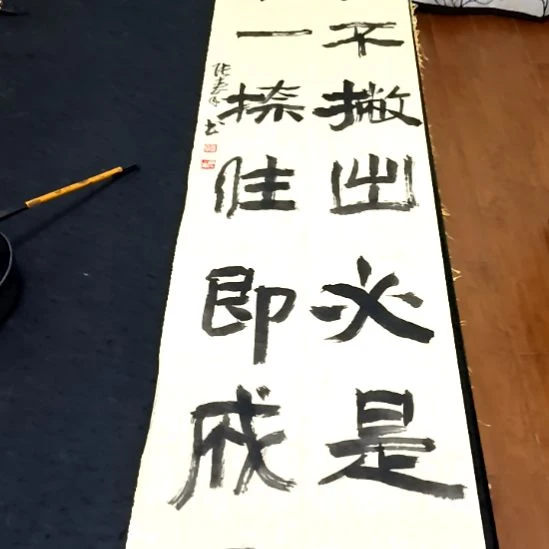 不撇出必是
一捺住即成
书